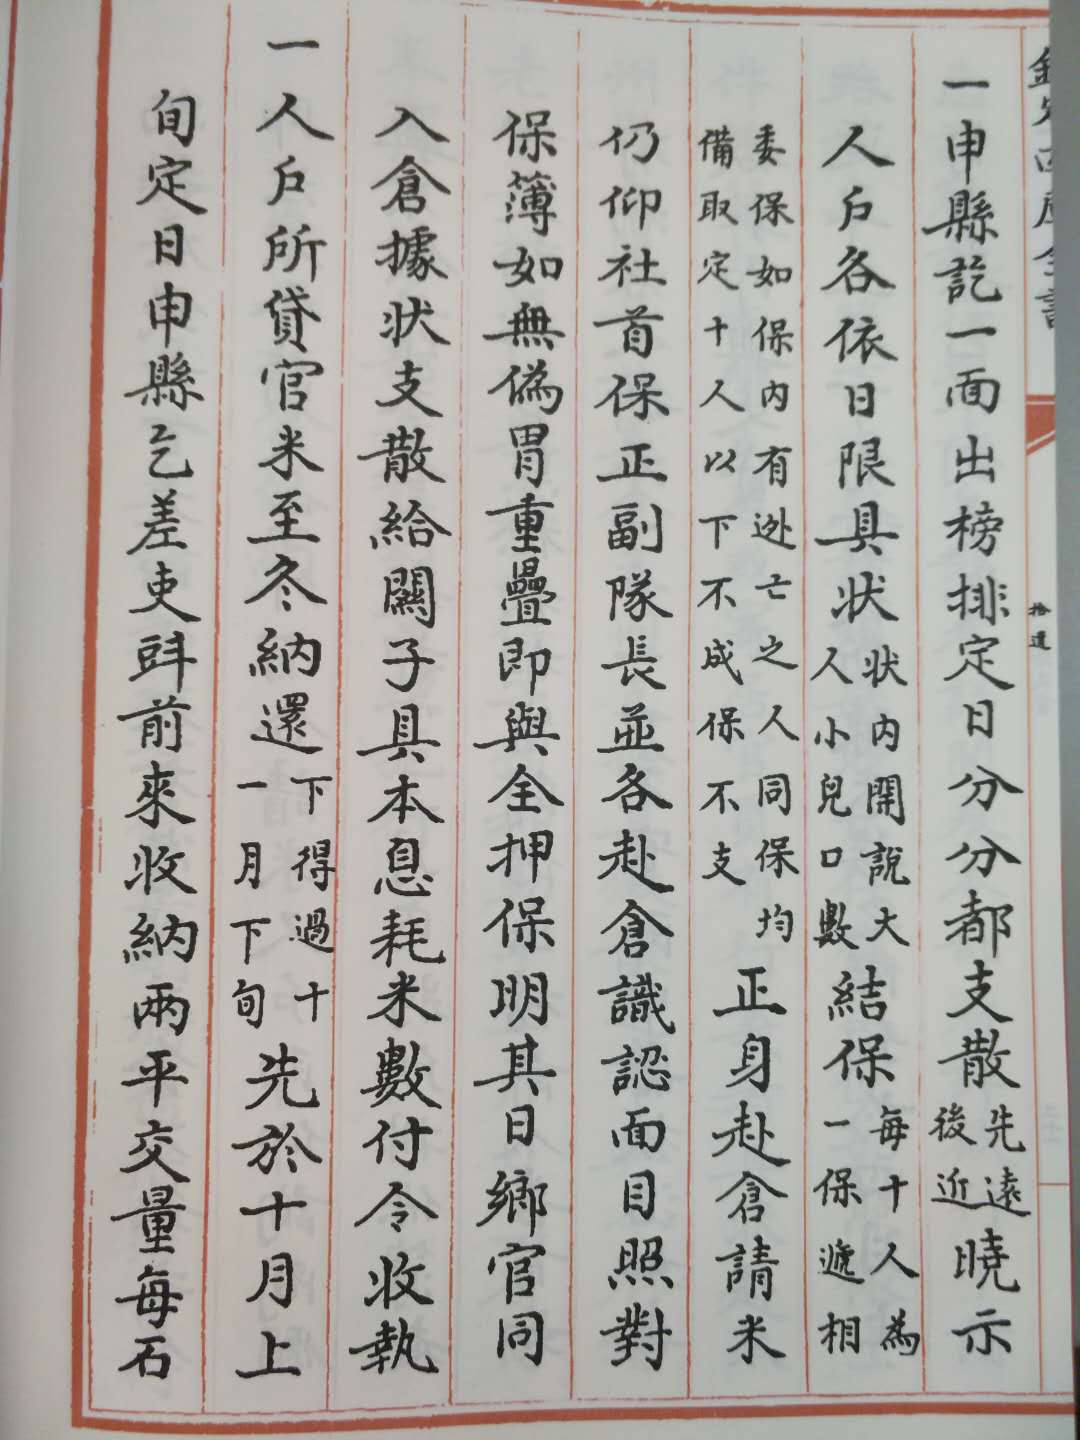 欽定四庫全書
拾遺
一申縣訖一面出榜排定日分分都支散先遠後近曉示
人户各依日限具状状内開說大人小兒口數結保每十人為一保遞相
委保如保内有迯亡之人同保均備取定十人以下不成保不支正身赴倉請米
仍仰社首保正副隊長並各赴倉識認面目照對
保簿如無偽冐重疊即與全押保明其日鄉官同
入倉據状支散給關子具本息耗米數付令收執
一人户所貸官米至冬納還下得過十一月下旬先於十月上
旬定日申縣乞差吏㪷前來收納兩平交量每石